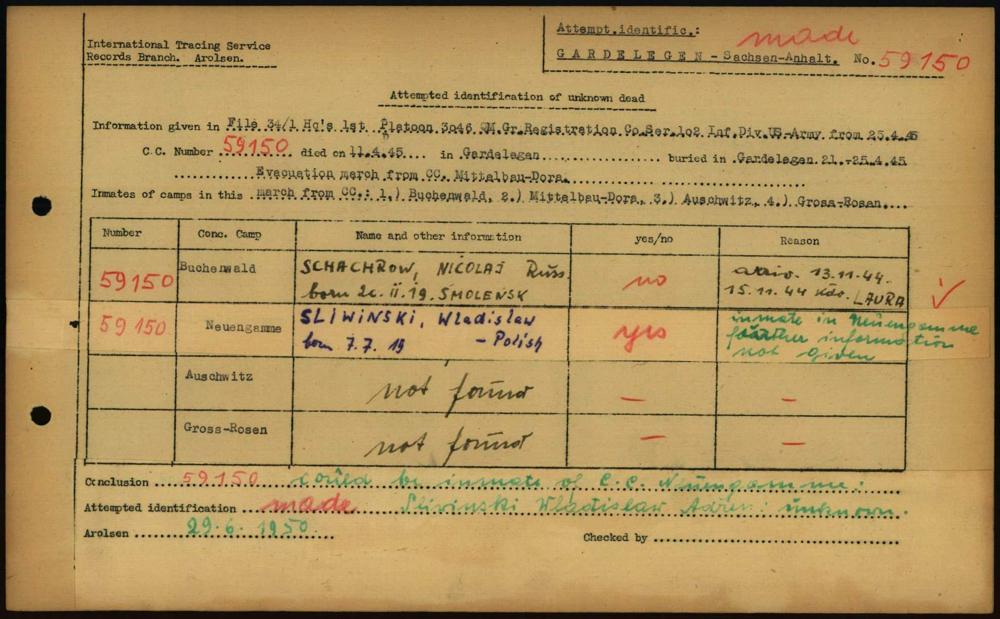 International Tracing Service
Records Branch. Arolsen.
Attempt.identific.: made
GARDELEGEN - Sachsen-Anhalt. No. 59150
Attempted identification of unknown dead
Information given in File 34/1 Hq's 1st Platoon 3046 QM.Gr.Registration Co.Ser.102 Inf.Div.US-Army from 25.4.45
C.C. Number 59150 died on 11.4.45 in Gardelegen buried in Gardelegen 21.-25.4.45
Evacuation march from CC. Mittelbau-Dora.
Inmates of camps in this march from CC.: 1.) Buchenwald, 2.) Mittelbau-Dora, 3.) Auschwitz, 4.) Gross-Rosen.
Number Conc. Camp Name and other information yes/no Reason
59150 Buchenwald SCHACHROW, NICOLAJ Russ no arriv. 13.11.44
born 20.II.19. SMOLENSK 15.11.44 Kdo. LAURA
59150 Neuengamme SLIWINSKI, Wladislaw yes inmate in Neuengamme
born 7.7.19 - Polish further information
not given
Auschwitz not found - -
Gross-Rosen not found - -
Conclusion 59150 could be inmate of C.C. Neuengamme:
Attempted identification made Sliwinski Wladislaw Adres: unknown.
Arolsen 29.6.1950 Checked by